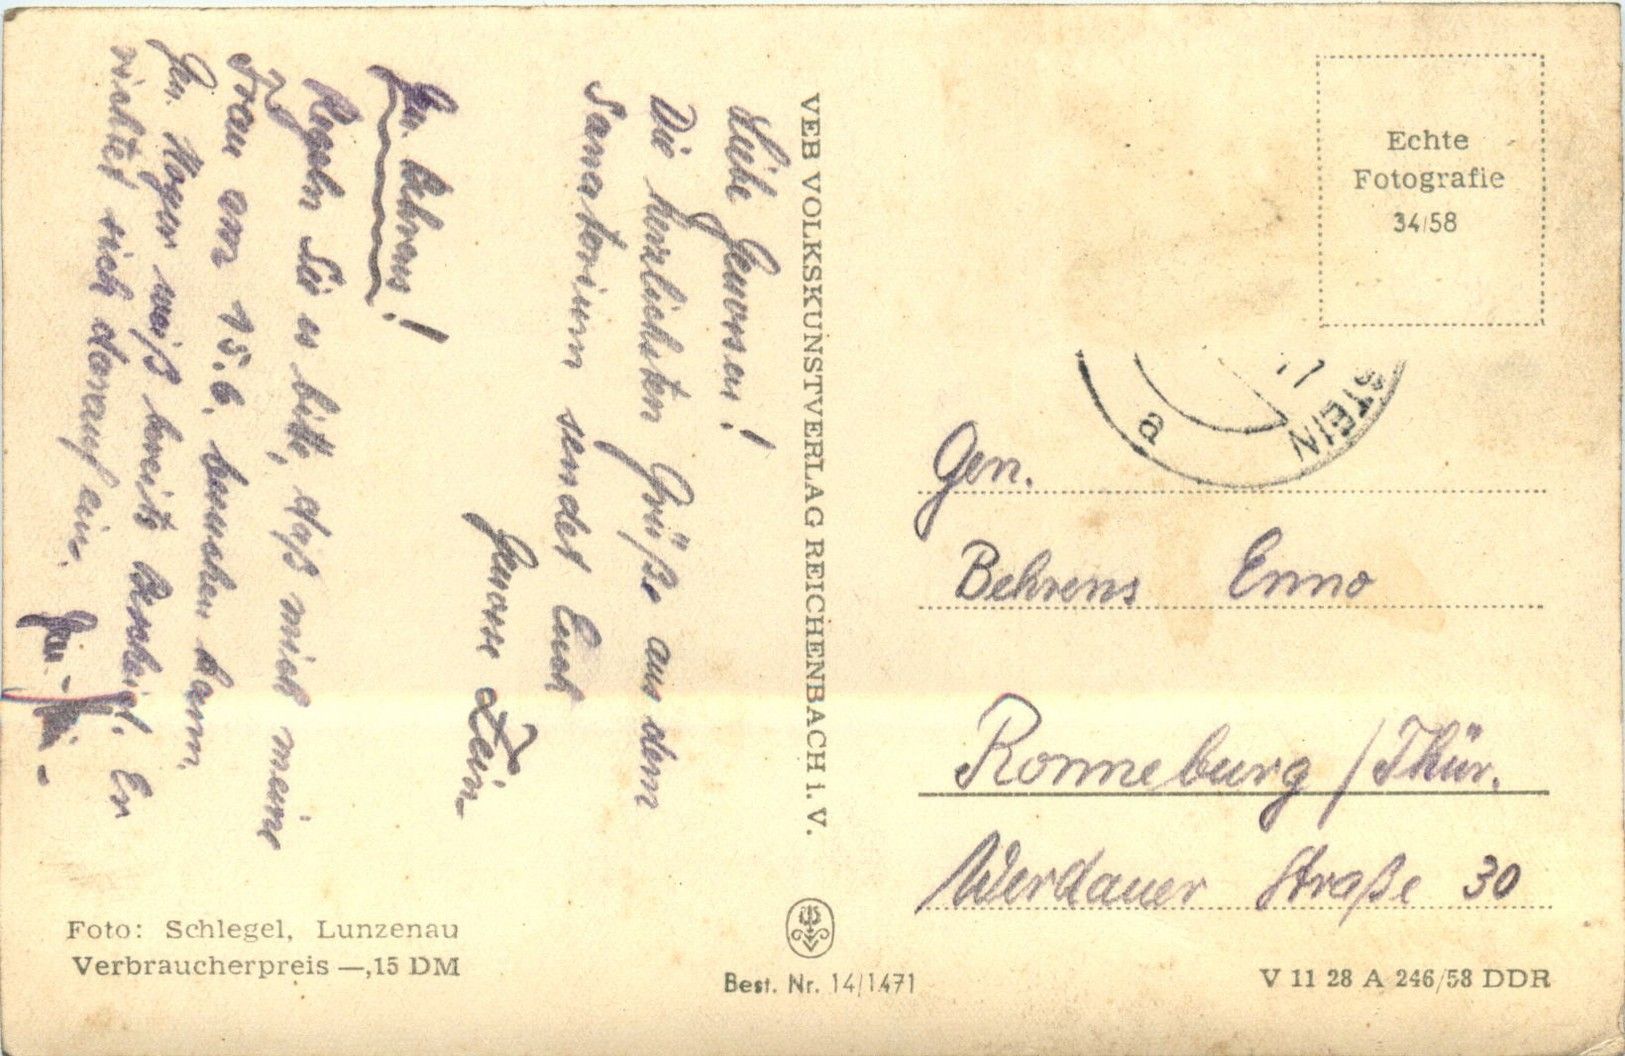 Liebe Genossen!
Die herzlichsten Grüße aus dem
Sanatorium sendet Euch
Genosse
Gen. Behrens!
Regeln Sie es bitte, daß mich meine
Frau am 15.6. besuchen kann.
Gen. weiß bereits Bescheid. Er
richtet sich darauf ein.
Gen.
VEB VOLKSKUNSTVERLAG REICHENBACH i. V.
Echte
Fotografie
34/58
STEIN
a
Gen.
Behrens Enno
Ronneburg / Thür.
Werdauer Straße 30
Foto: Schlegel, Lunzenau
Verbraucherpreis —,15 DM
Best. Nr. 14/1471
V 11 28 A 246/58 DDR